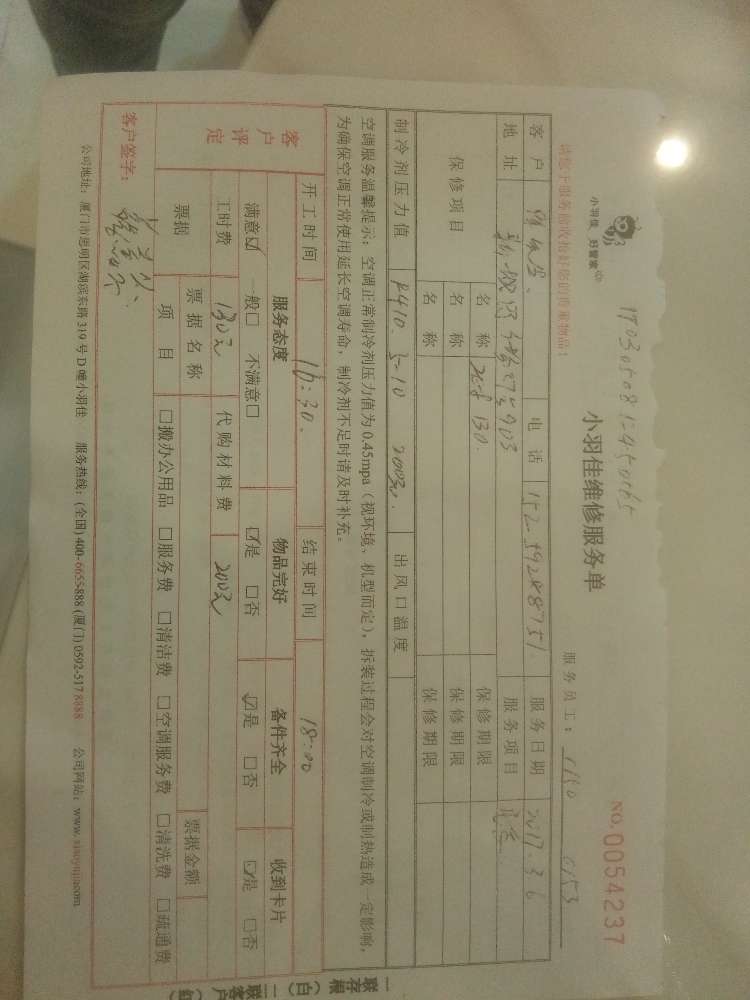 小羽佳 好管家
小羽佳维修服务单
NO.0054237
请您于服务前收拾好您的贵重物品!
服务员工:
客户 电话 服务日期 2017.3.6
地址 服务项目
保修项目 名称 保修期限
名称 保修期限
名称 保修期限
制冷剂压力值 R410 出风口温度
空调服务温馨提示:空调正常制冷剂压力值为0.45mpa(视环境、机型而定),拆装过程会对空调制冷或制热造成一定影响,
为确保空调正常使用延长空调寿命,制冷剂不足时请及时补充。
开工时间 16:30. 结束时间 18:00
客户评定 服务态度 物品完好 备件齐全 收到卡片
满意☑ 一般□ 不满意□ ☑是 □否 ☑是 □否 ☑是 □否
工时费 130元 代购材料费 200元
票据 票据名称 票据金额
项目 □搬办公用品 □服务费 □清洁费 □空调服务费 □清洗费 □疏通费
客户签字:
公司地址:厦门市思明区湖滨东路319号D幢小羽佳 服务热线:(全国)400-6655-888(厦门)0592-5178888 公司网站:www.xiaoyujia.com
一联存根(白) 二联客户(红)